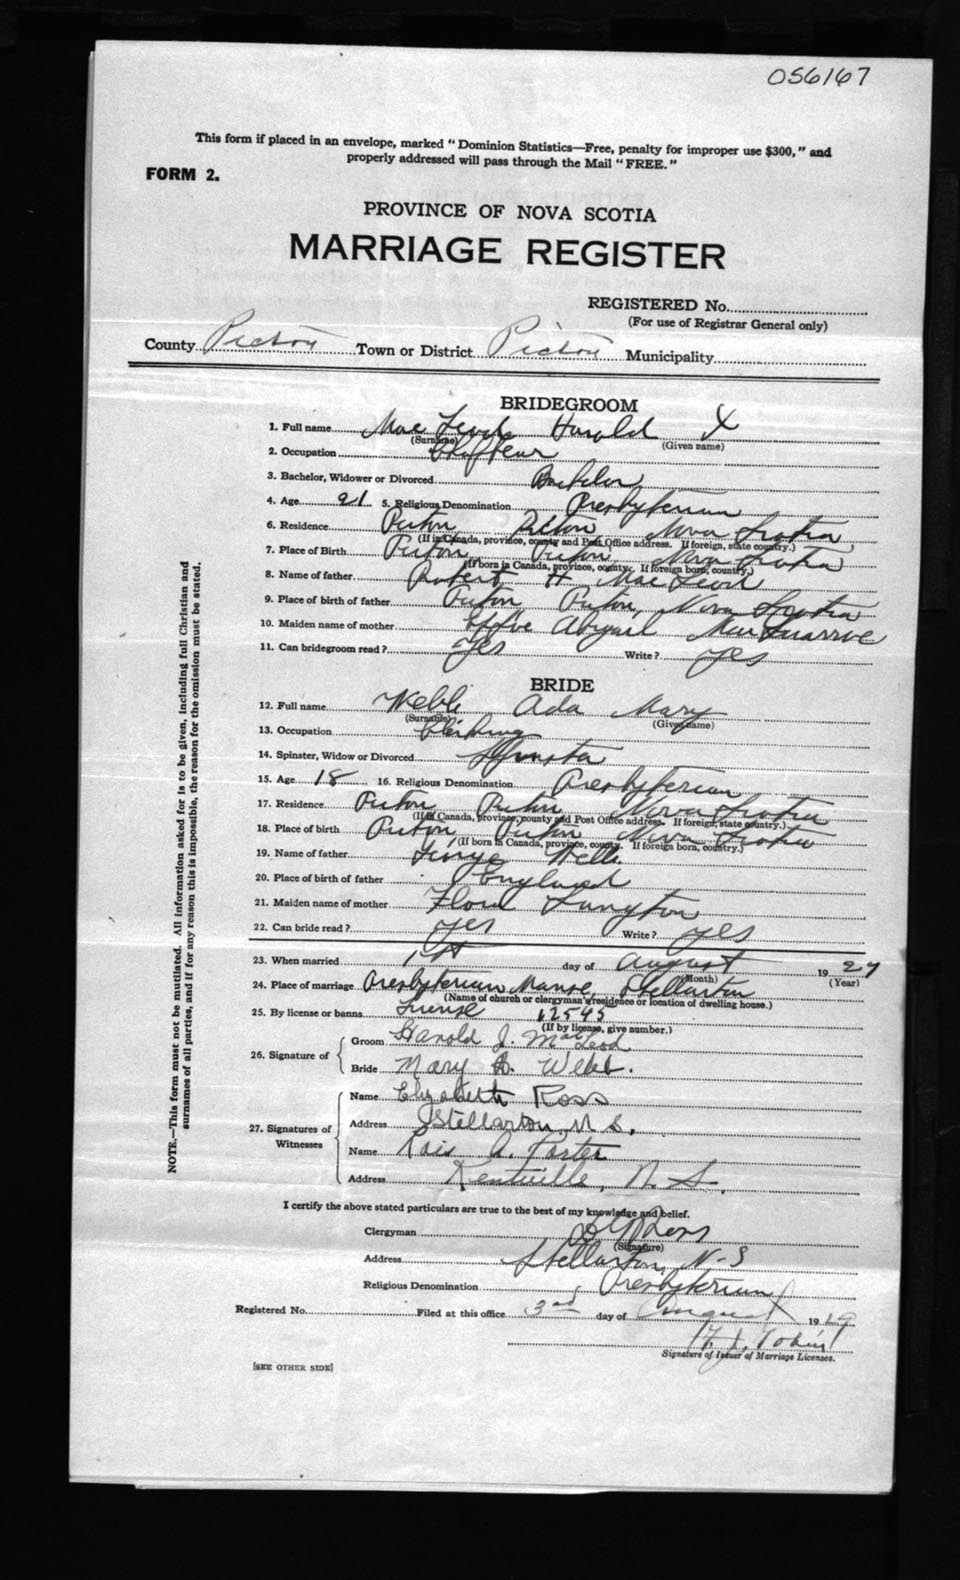 056167
This form if placed in an envelope, marked "Dominion Statistics—Free, penalty for improper use $300," and
properly addressed will pass through the Mail "FREE."
FORM 2.
PROVINCE OF NOVA SCOTIA
MARRIAGE REGISTER
REGISTERED No.
(For use of Registrar General only)
County Pictou Town or District Pictou Municipality
BRIDEGROOM
1. Full name MacLeod Harold
(Surname) (Given name)
2. Occupation
3. Bachelor, Widower or Divorced Bachelor
4. Age 21 5. Religious Denomination Presbyterian
6. Residence Pictou Pictou Nova Scotia
(If in Canada, province, county and Post Office address. If foreign, state country.)
7. Place of Birth Pictou Pictou Nova Scotia
(If born in Canada, province, county. If foreign born, country.)
8. Name of father Robert H MacLeod
9. Place of birth of father Pictou Pictou, Nova Scotia
10. Maiden name of mother Abigail
11. Can bridegroom read? Yes Write? Yes
BRIDE
12. Full name Webb Ada Mary
(Surname) (Given name)
13. Occupation
14. Spinster, Widow or Divorced Spinster
15. Age 18 16. Religious Denomination Presbyterian
17. Residence Pictou Pictou Nova Scotia
(If in Canada, province, county and Post Office address. If foreign, state country.)
18. Place of birth Pictou Pictou Nova Scotia
(If born in Canada, province, county. If foreign born, country.)
19. Name of father George Webb
20. Place of birth of father England
21. Maiden name of mother Langton
22. Can bride read? Yes Write? Yes
23. When married 1st day of August 1929
(Month) (Year)
24. Place of marriage Presbyterian Manse, Stellarton
(Name of church or clergyman's residence or location of dwelling house.)
25. By license or banns License 12545
(If by license, give number.)
26. Signature of Groom Harold J. MacLeod
Bride Mary A. Webb.
27. Signatures of Witnesses Name Elizabeth Ross
Address Stellarton, N.S.
Name A. Porter
Address Kentville, N.S.
I certify the above stated particulars are true to the best of my knowledge and belief.
Clergyman
(Signature)
Address Stellarton, N-S
Religious Denomination Presbyterian
Registered No. Filed at this office 3rd day of August 1929
Tobin
Signature of Issuer of Marriage Licenses.
[SEE OTHER SIDE]
NOTE.—This form must not be mutilated. All information asked for is to be given, including full Christian and
surnames of all parties, and if for any reason this is impossible, the reason for the omission must be stated.